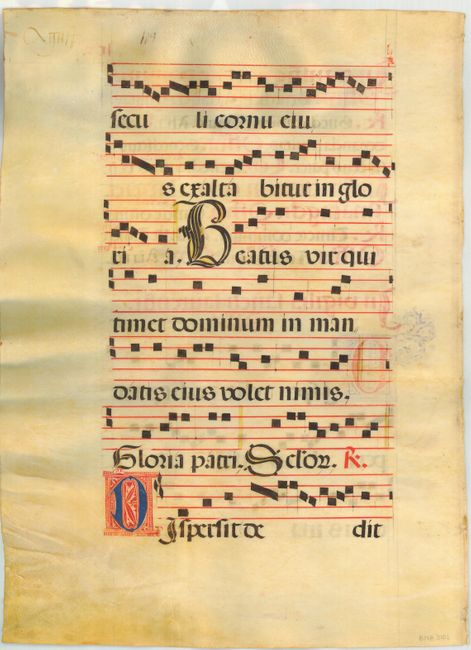 secu li cornu eiu
s exalta bitur in glo
ri a. Beatus vir qui
timet dominum in man
datis eius volet nimis.
Gloria patri. Sclor. R.
Dispersit de dit